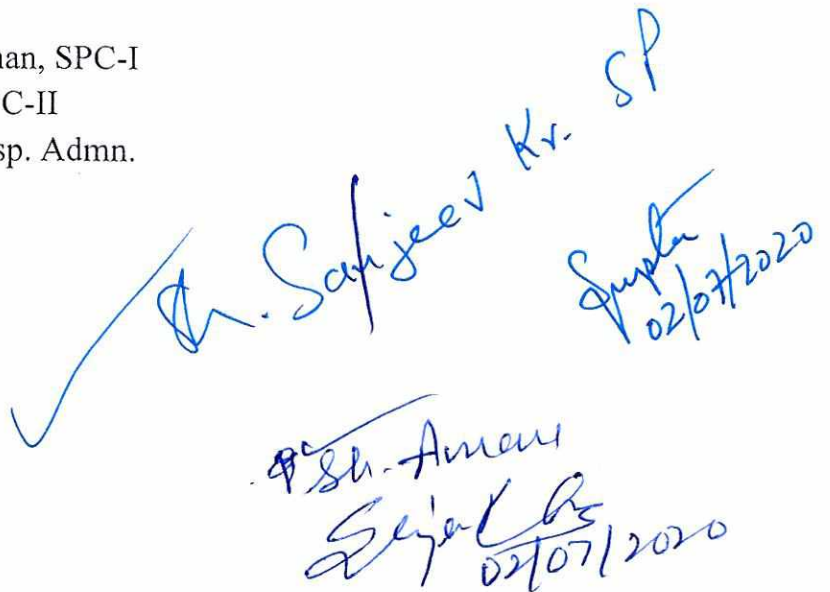 nan, SPC-I
C-II
sp. Admn.
Sh. Sanjeev Kr. SP
Gupta
02/07/2020
Sh. Aman
02/07/2020